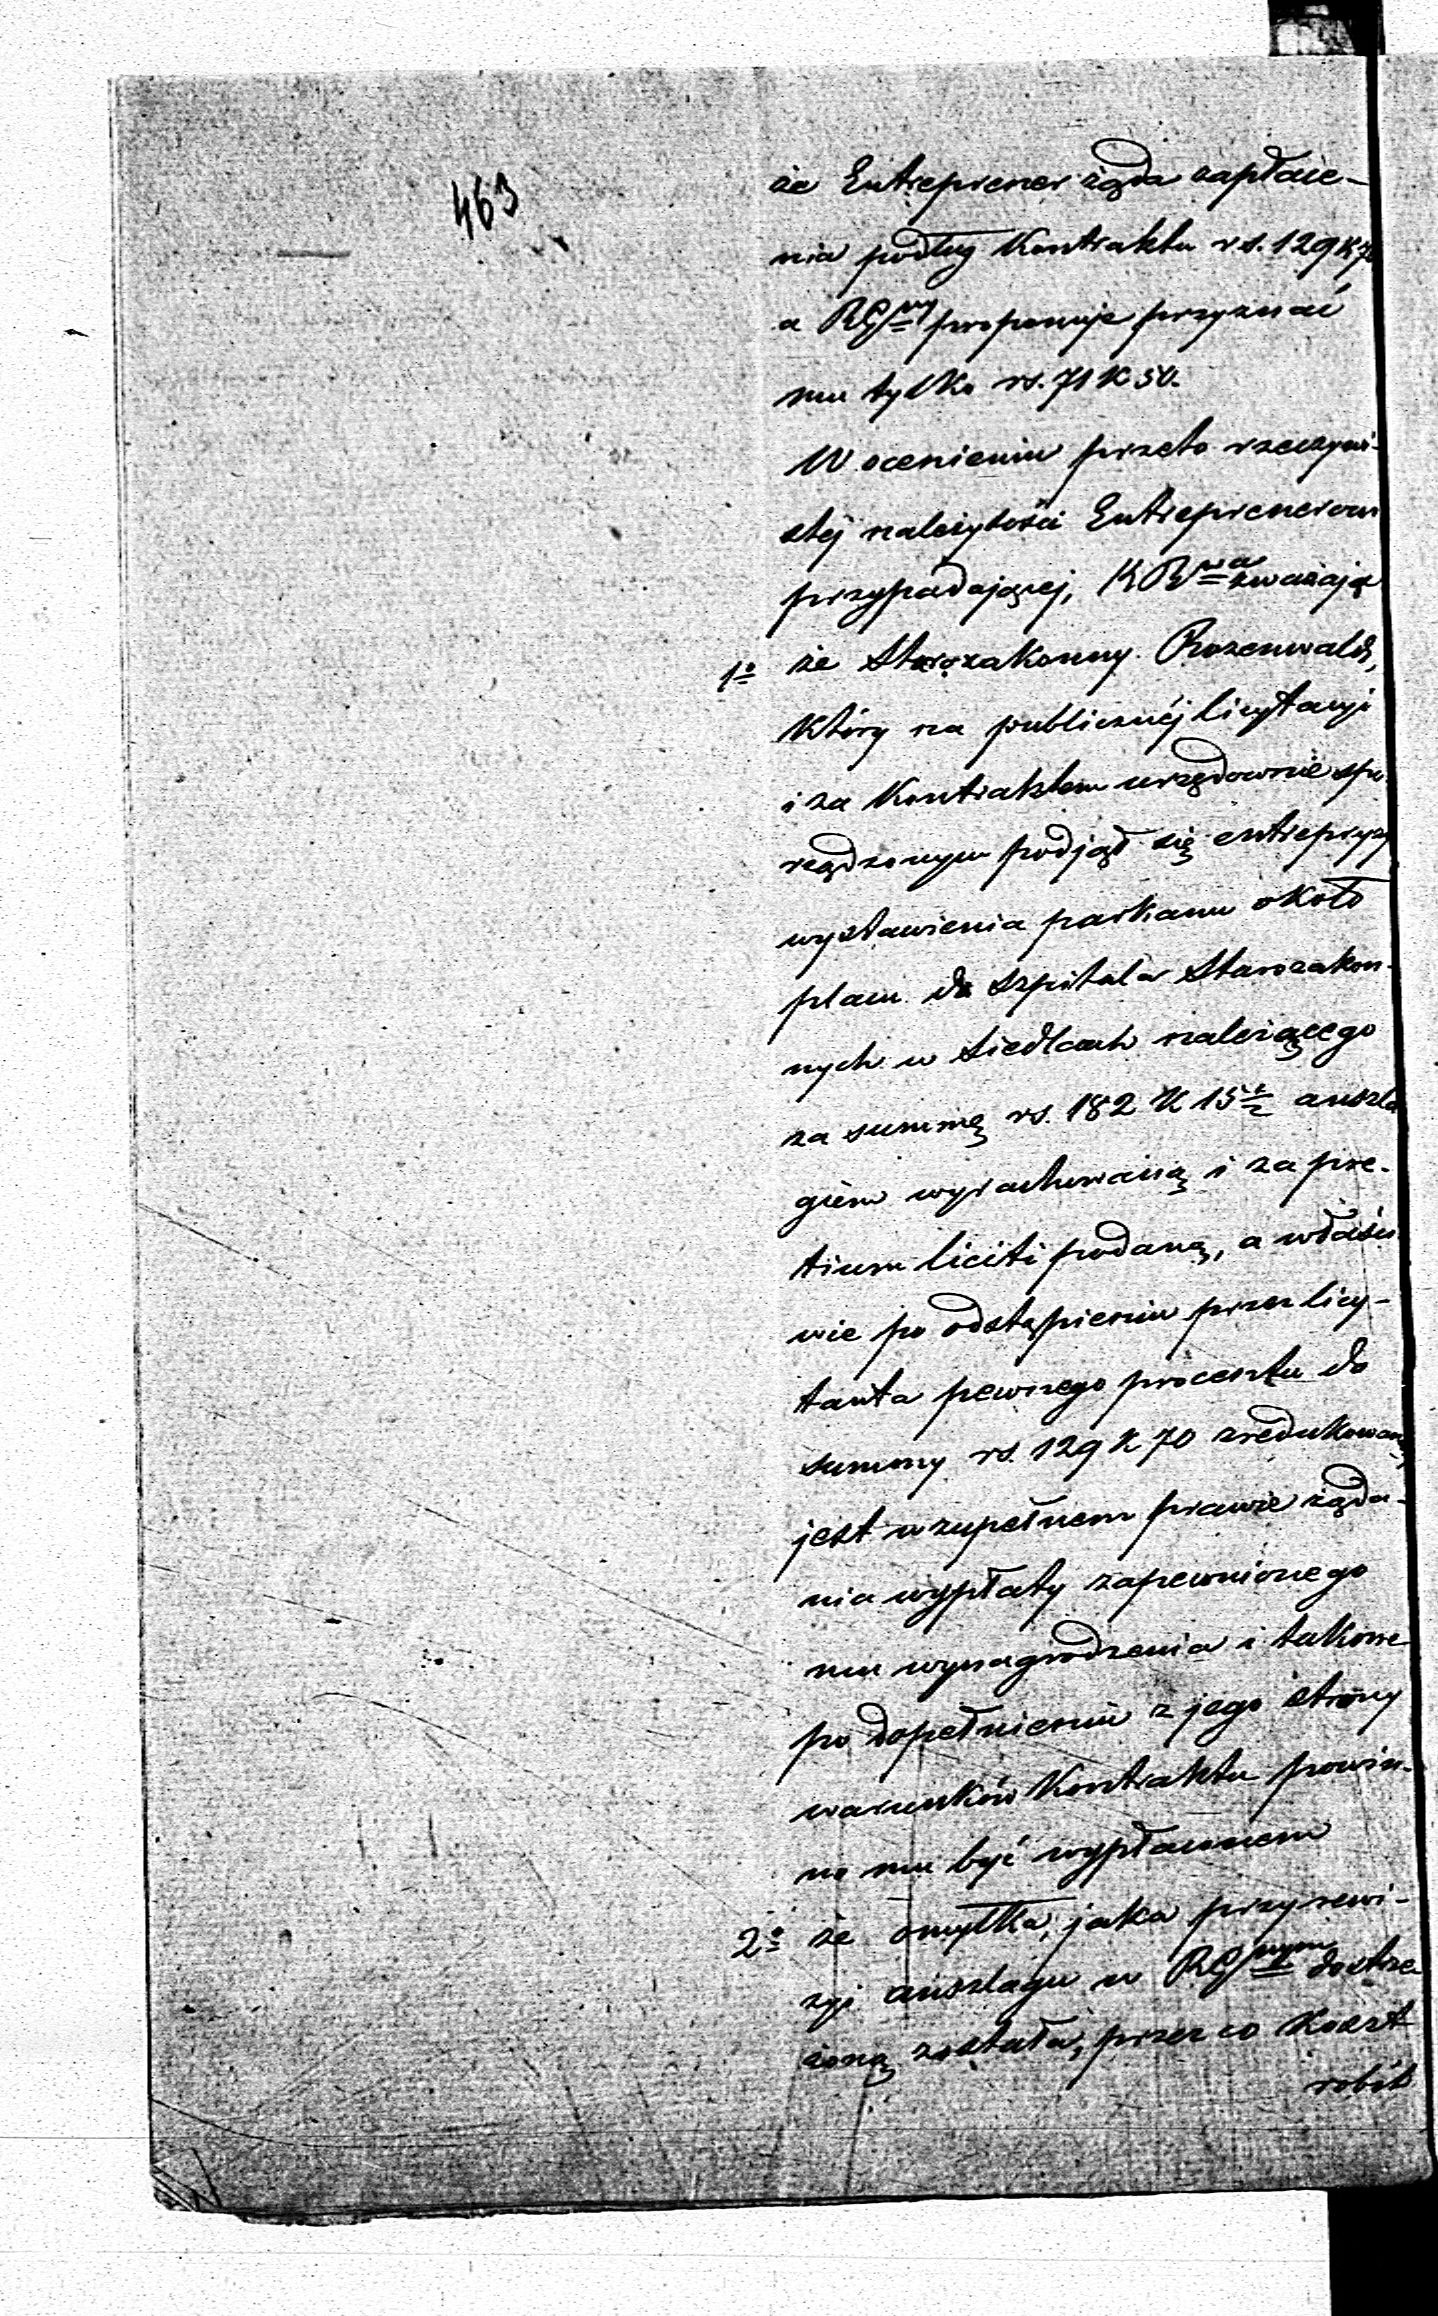 463
że Entreprener żąda zapłace-
nia podług Kontraktu rs. 129 K 70
a RG^ny proponuje przyznać
mu tylko rs. 71 K 50.
W ocenieniu przeto rzeczywi-
stéj należytości Entreprenerowi
przypadającej, KR^wa zważając
1° że Starozakonny Rozenwald,
który na publicznéj licytacyi
i za Kontraktem urzędownie spo-
rządzonym podjął się entrepryzy
wystawienia parkanu około
placu do Szpitala Starozakon-
nych w Siedlcach należącego
za summę rs. 182 K 15½ anszla
giem wyrachowaną i za pre-
tium liciti podaną, a właści
wie po odstąpieniu przez licy-
tanta pewnego procentu do
summy rs. 129 K 70 zredukowaną,
jest w zupełnem prawie żąda-
nia wypłaty zapewnionego
mu wynagrodzenia i takowe
po dopełnieniu z jego strony
warunków Kontraktu powin-
no mu być wypłaconem
2° że omyłka, jaka przy rewi-
zyi anszlagu w RG^nym dostrze
żoną została, przez co Koszt
robót